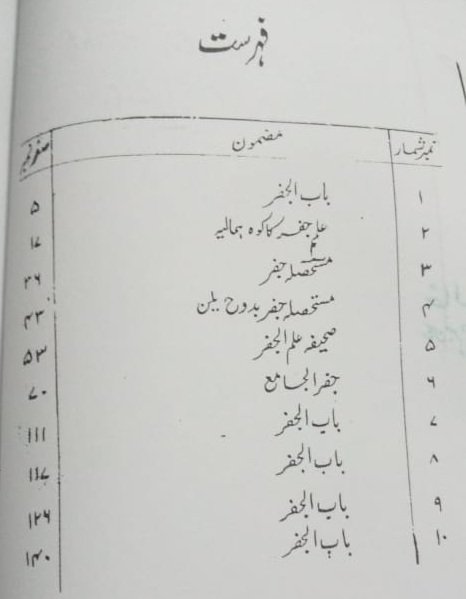 فہرست
نمبر شمار مضمون صفحہ نمبر
۱ باب الجفر ۵
۲ علم جفر کا کوہ ہمالیہ ۱۷
۳ مستحصلہ جفر ۲۶
۴ مستحصلہ جفر بدوح یلن ۴۳
۵ صحیفہ علم الجفر ۵۳
۶ جفر الجامع ۷۰
۷ باب الجفر ۱۱۱
۸ باب الجفر ۱۱۷
۹ باب الجفر ۱۲۶
۱۰ باب الجفر ۱۴۰